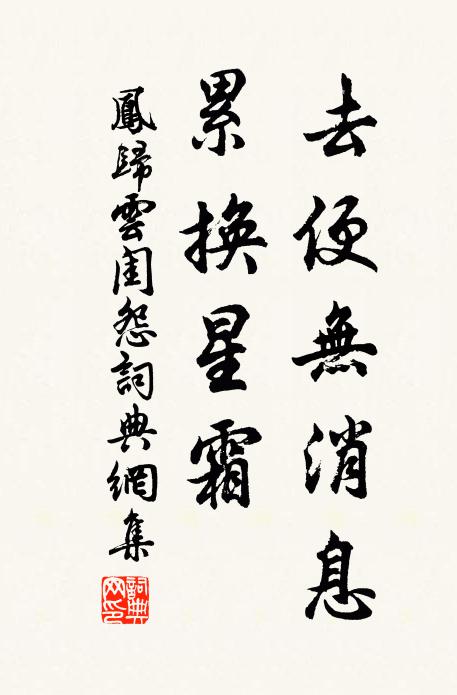 去便無消息
累換星霜
鳳歸雲閨怨詞典網集
詞典网印